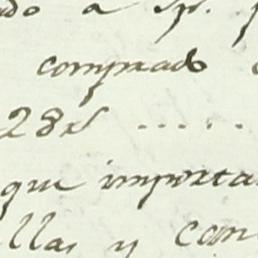 do a
comprado
28
que importa
llas y con